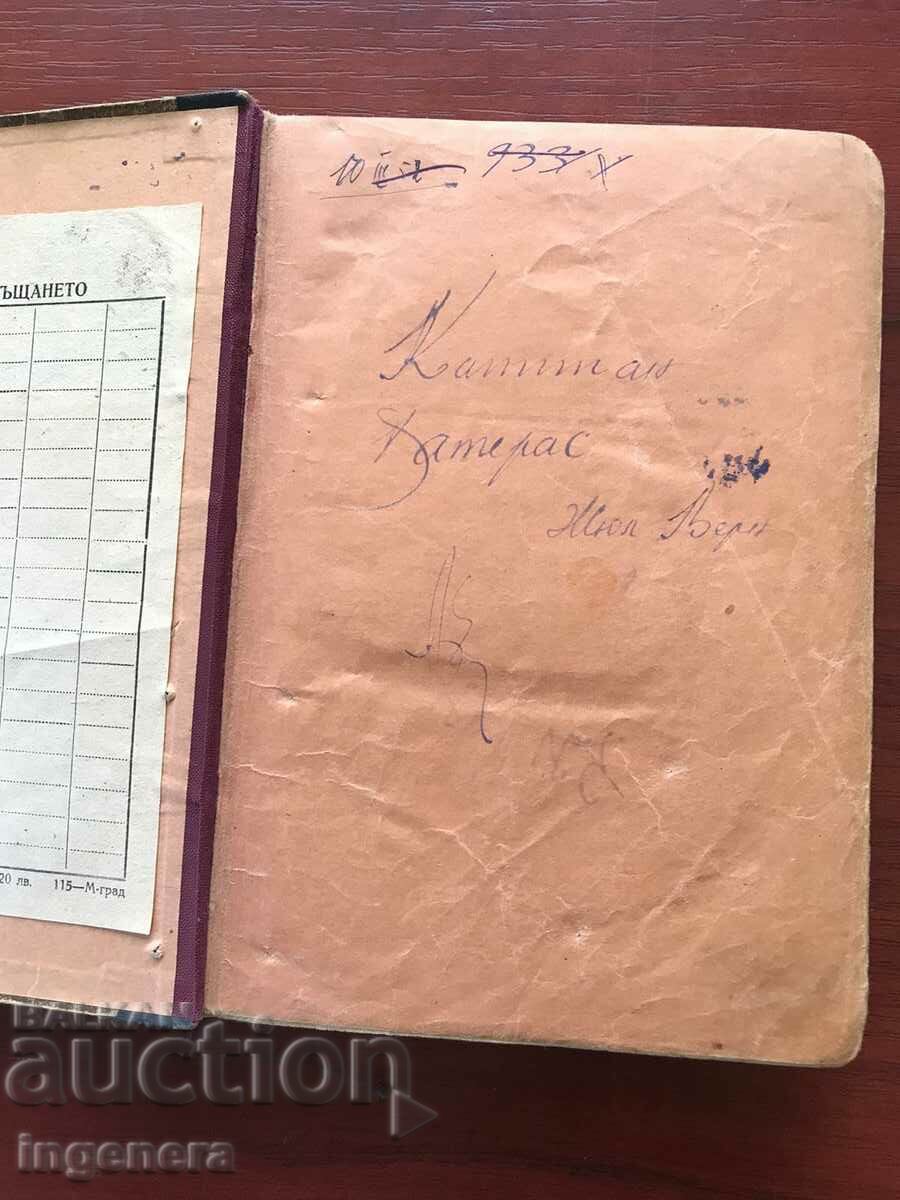 ЪЩАНЕТО
20 лв. 115—М-град
10 III
933 X
Капитан
Хатерас
Жюл Верн
BALKAN
auction
ingenera